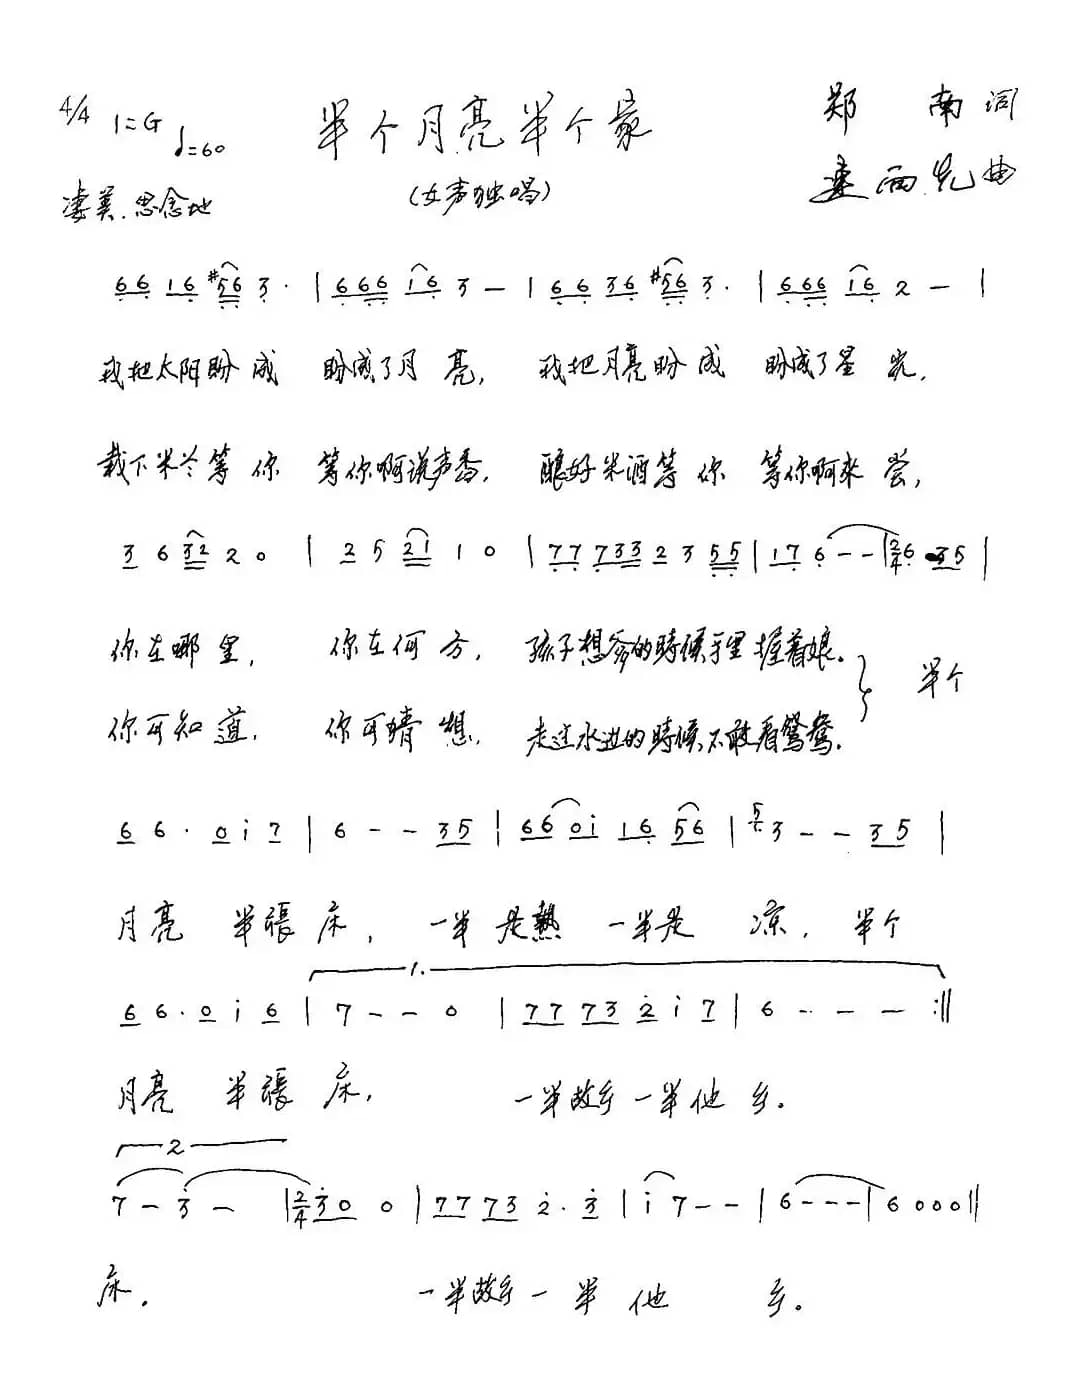 4/4 1=G ♩=60 半个月亮半个家 郑 南词
凄美.思念地 (女声独唱) 雨先曲
66 16 #56 3· | 666 16 3 — | 66 36 #56 3· | 666 16 2 — |
我把太阳盼成 盼成了月亮, 我把月亮盼成 盼成了星光,
栽下米兰等你 等你啊说声香, 酿好米酒等你 等你啊来尝,
3 6 32 2 0 | 2 5 21 1 0 | 77 733 2 3 55 | 17 6 - - | 2/4 6· 35 |
你在哪里, 你在何方, 孩子想爹的時候手里握着娘。 半个
你可知道, 你可猜想, 走过水边的時候不敢看鴛鴦.
6 6· 0 i 7 | 6 - - 35 | 66 0i 16 56 | 5 3 - - 35 |
月亮 半張床, 一半是熱 一半是凉, 半个
1.
6 6· 0 i 6 | 7 - - 0 | 77 73 2 i 7 | 6 - - - :||
月亮 半張床, 一半故乡一半他乡。
2
7 - 3 - | 2/4 3 0 0 | 77 73 2· 3 | i 7 - - | 6 - - - | 6 0 0 0 ||
床. 一半故乡一半他 乡。